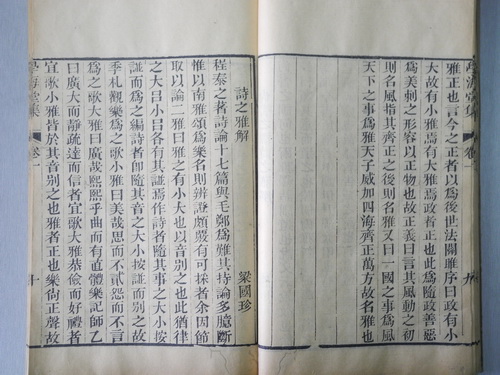 學海堂集 卷一 九
雅正也言今之正者以爲後世法關雎序曰政有小
大故有小雅焉有大雅焉政皆正也此爲隨政善惡
爲美刺之形容以正物也故正義曰言其風動之初
則名風指其齊正之後則名雅又曰一國之事爲風
天下之事爲雅天子威加四海齊正萬方故名雅也
詩之雅解
梁國珍
程泰之著詩論十七篇與毛鄭爲難其持論多臆斷
惟以南雅頌爲樂名則辨證頗嚴有可採者余因節
取以論二雅曰雅之有小大也以音別之也此猶律
之大呂小呂各有其譜焉作詩者隨其事之大小按
譜而爲之編詩者卽隨其音之大小按譜而別之故
季札觀樂爲之歌小雅曰美哉思而不貳怨而不言
爲之歌大雅曰廣哉熙熙乎曲而有直體樂記師乙
曰廣大而靜疏達而信者宜歌大雅恭儉而好禮者
宜歌小雅皆於其音別之也雅者正也樂尙正聲故
學海堂集 卷一 十